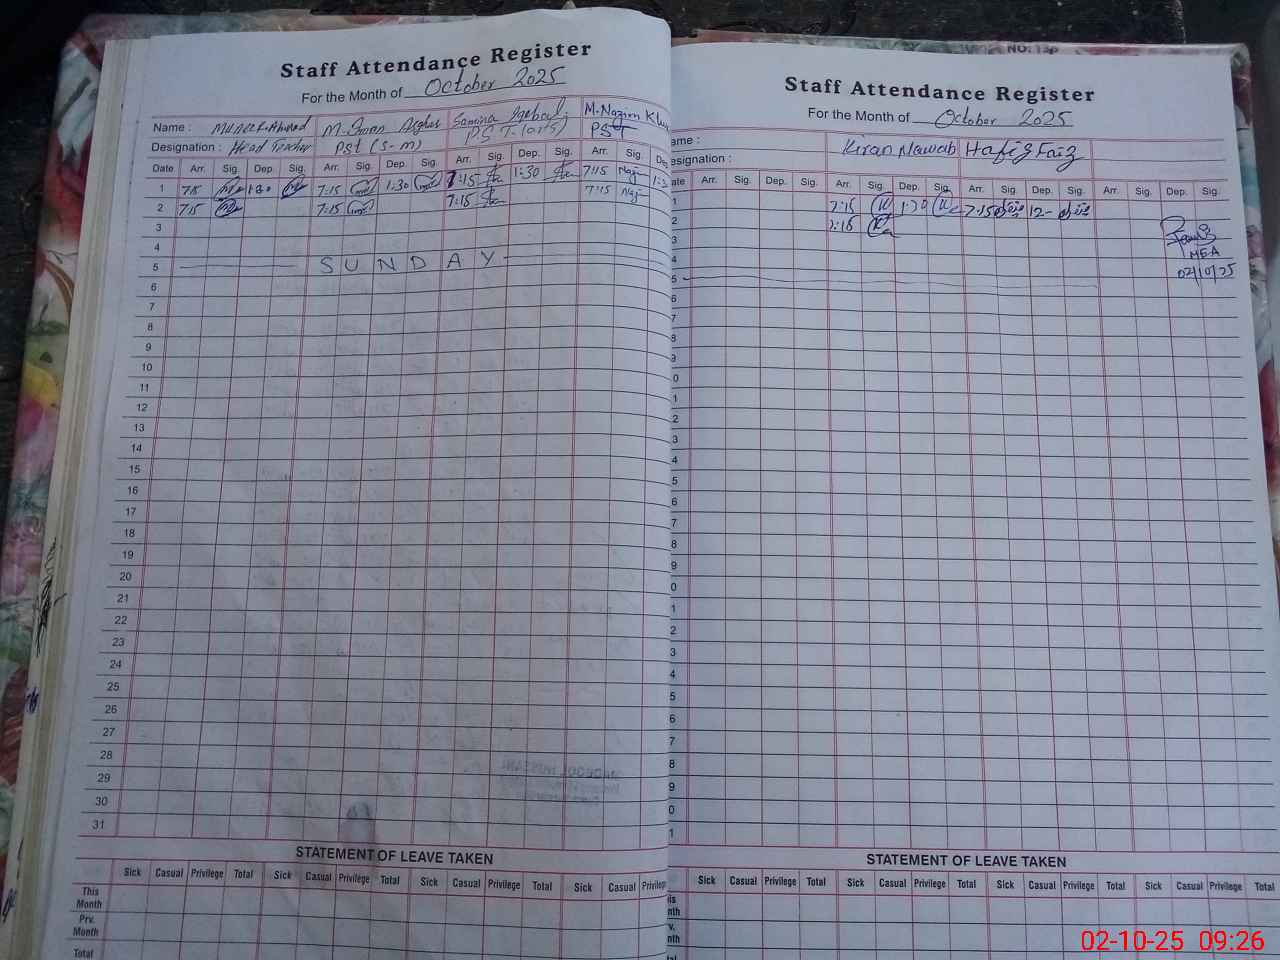 Staff Attendance Register
For the Month of October 2025
Name : Mudasar Ahmad M. Iman Asghar Samina Iqbal M. Nazim Khan
Designation : Head Teacher Pst (S-m) PST. (ars) PST
Date Arr. Sig. Dep. Sig. Arr. Sig. Dep. Sig. Arr. Sig. Dep. Sig. Arr. Sig. Dep
1 7:15 1:30 7:15 1:30 7:15 1:30 7:15 Naji 1:3
2 7:15 7:15 7:15 7:15 Naji
3
4
5 SUNDAY
6
7
8
9
10
11
12
13
14
15
16
17
18
19
20
21
22
23
24
25
26
27
28
29
30
31
STATEMENT OF LEAVE TAKEN
Sick Casual Privilege Total Sick Casual Privilege Total Sick Casual Privilege Total Sick Casual Privileg
This Month
Prv. Month
Total
NO: 13p
Staff Attendance Register
For the Month of October 2025
ame : Kiran Nawab Hafiz Faiz
esignation :
ate Arr. Sig. Dep. Sig. Arr. Sig. Dep. Sig. Arr. Sig. Dep. Sig. Arr. Sig. Dep. Sig.
1 7:15 1:30 7:15 12-
2 7:15
3
4 MEA
5 02/10/25
6
7
8
9
0
1
2
3
4
5
6
7
8
9
0
1
2
3
4
5
6
7
8
9
0
1
STATEMENT OF LEAVE TAKEN
Sick Casual Privilege Total Sick Casual Privilege Total Sick Casual Privilege Total Sick Casual Privilege Total
is
nth
v.
nth
tal
02-10-25 09:26